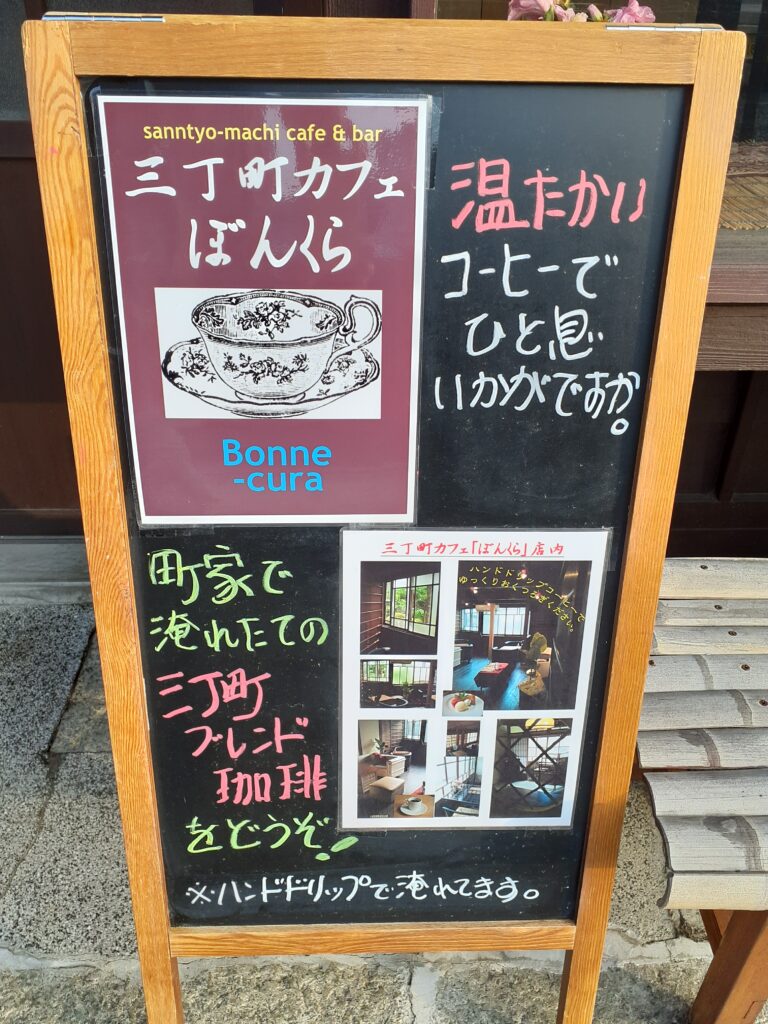 sanntyo-machi cafe & bar
三丁町カフェ
ぼんくら
Bonne
-cura
温たかい
コーヒーで
ひと息
いかがですか。
町家で
淹れたての
三丁町
ブレンド
珈琲
をどうぞ!
三丁町カフェ「ぼんくら」店内
ハンドドリップコーヒーで
ゆっくりおくつろぎください。
※ハンドドリップで淹れてます。